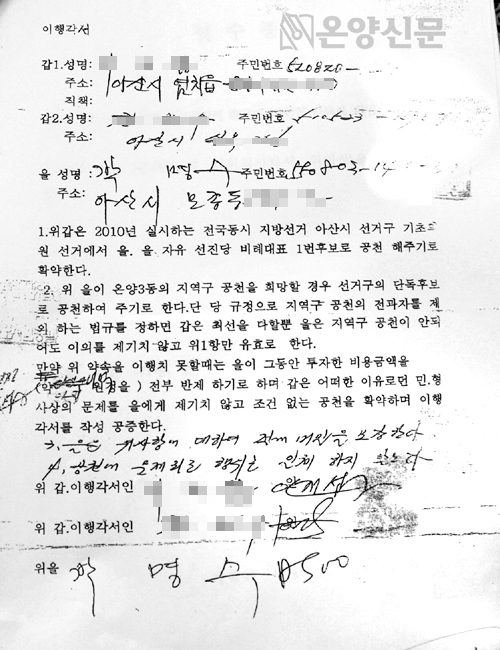 온양신문
이행각서
갑1.성명: 주민번호 520820-
주소: 아산시 염치읍
직책:
갑2.성명: 주민번호
주소: 아산시
을 성명 : 곽 명 수 주민번호 550803-14
주소: 아산시 모종동
1.위갑은 2010년 실시하는 전국동시 지방선거 아산시 선거구 기초의
원 선거에서 을. 을 자유 선진당 비례대표 1번후보로 공천 해주기로
확약한다.
2. 위 을이 온양3동의 지역구 공천을 희망할 경우 선거구의 단독후보
로 공천하여 주기로 한다.단 당 규정으로 지역구 공천의 전과자를 제
외 하는 법규를 정하면 갑은 최선을 다할뿐 을은 지역구 공천이 안되
어도 이의를 제기치 않고 위1항만 유효로 한다.
만약 위 약속을 이행치 못할때는 을이 그동안 투자한 비용금액을
원정을 ) 전부 반제 하기로 하며 갑은 어떠한 이유로던 민.형
사상의 문제를 을에게 제기치 않고 조건 없는 공천을 확약하며 이행
각서를 작성 공증한다.
3, 을은 대하여 보장한다
4, 공천에 문제되는 행위는 일체 하지 않는다
위 갑.이행각서인
위 갑.이행각서인
위을 곽 명 수